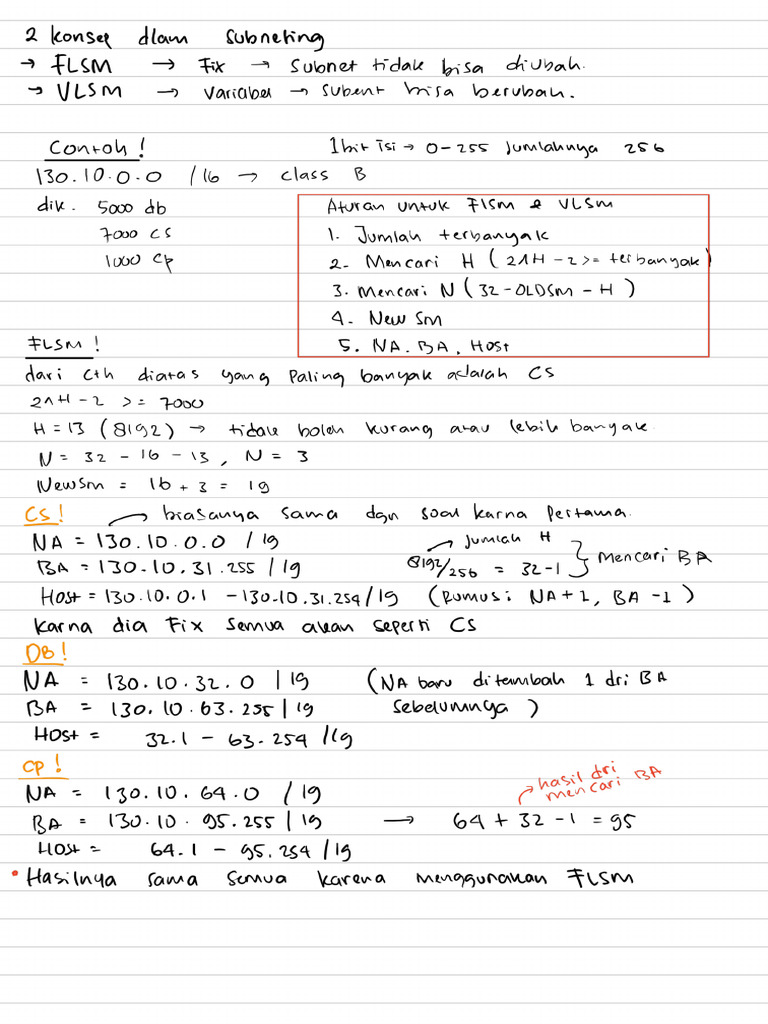 2 konsep dlam subneting
→ FLSM → Fix → subnet tidak bisa diubah.
→ VLSM → variabel → subent bisa berubah.
Contoh !
1 bit isi → 0-255 jumlahnya 256
130.10.0.0 /16 → class B
dik. 5000 db
7000 cs
1000 cp
Aturan untuk FlSm & VLSm
1. Jumlah terbanyak
2. Mencari H ( 2^H-2 >= terbanyak )
3. Mencari N ( 32-OLDSm - H )
4. New Sm
5. NA. BA, Host
FLSM !
dari cth diatas yang paling banyak adalah CS
2^H-2 >= 7000
H = 13 (8192) → tidak boleh kurang atau lebih banyak.
N = 32 - 16 - 13, N = 3
NewSm = 16 + 3 = 19
CS! → biasanya sama dgn soal karna pertama.
NA = 130.10.0.0 /19
BA = 130.10.31.255 /19
→ jumlah H
8192/256 = 32-1 } mencari BA
Host = 130.10.0.1 - 130.10.31.254/19 (Rumus: NA+1, BA-1)
karna dia Fix semua akan seperti CS
DB!
NA = 130.10.32.0 /19 (NA baru ditambah 1 dri BA
BA = 130.10.63.255/19 sebelumnya )
Host = 32.1 - 63.254 /19
cp!
NA = 130.10.64.0 /19
→ hasil dri mencari BA
BA = 130.10.95.255/19 → 64 + 32 - 1 = 95
Host = 64.1 - 95.254 /19
• Hasilnya sama semua karena menggunakan FLSM